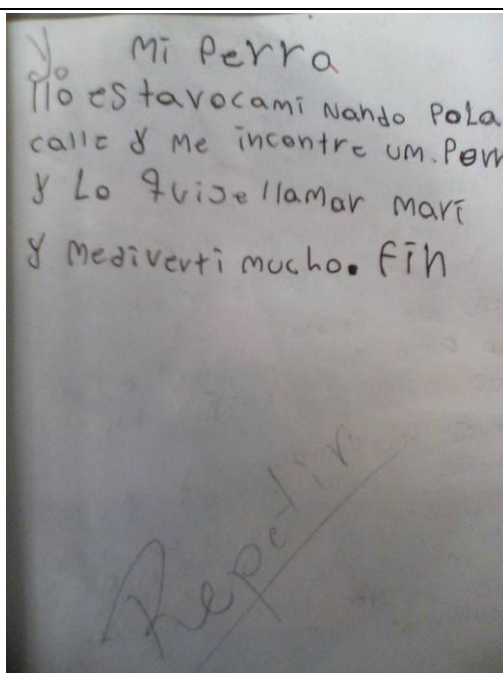 Mi Perra
Yo
llo es tavocami Nando pola
calle y me incontre um. Perr
y Lo quise llamar mari
y mediverti mucho. Fin
Repetir